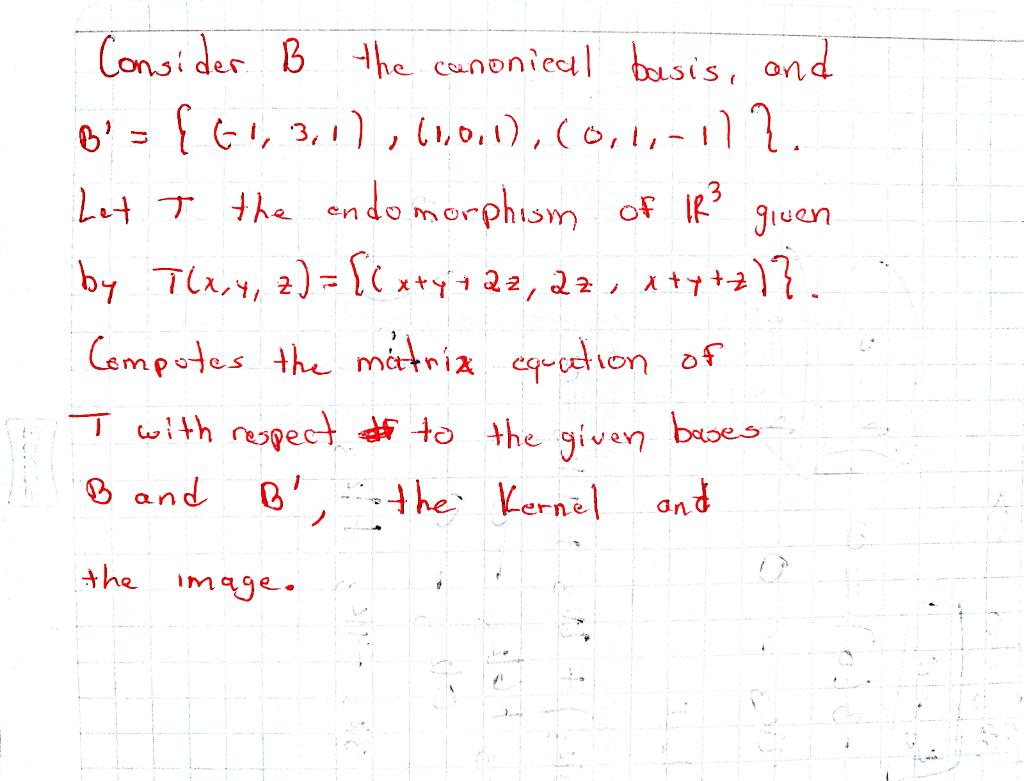 Consider B the canonical basis, and
B' = { (-1, 3, 1), (1, 0, 1), (0, 1, -1) }.
Let T the endomorphism of ℝ³ given
by T(x, y, z) = {(x+y+2z, 2z, x+y+z)}.
Computes the matrix equation of
T with respect to the given bases
B and B', the Kernel and
the image.